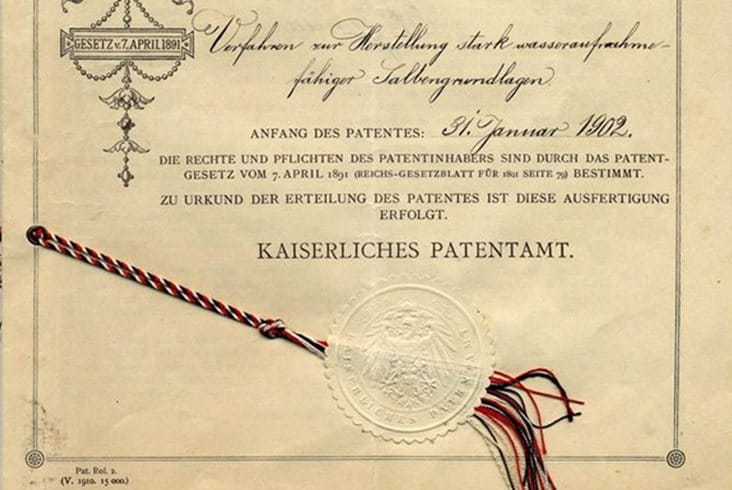 GESETZ v. 7. APRIL 1891
Verfahren zur Herstellung stark wasseraufnahme-
fähiger Salbengrundlagen.
ANFANG DES PATENTES: 31. Januar 1902.
DIE RECHTE UND PFLICHTEN DES PATENTINHABERS SIND DURCH DAS PATENT-
GESETZ VOM 7. APRIL 1891 (REICHS-GESETZBLATT FÜR 1891 SEITE 79) BESTIMMT.
ZU URKUND DER ERTEILUNG DES PATENTES IST DIESE AUSFERTIGUNG
ERFOLGT.
KAISERLICHES PATENTAMT.
KAISERLICHES PATENTAMT
Pat. Rol. 2.
(V. 1910. 15000.)